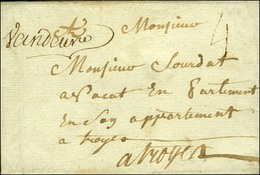 Monsieur
Vandeuvre
4
Monsieur Sourdat
avocat En Parlement
En Son appartement
a troyes
a troyes